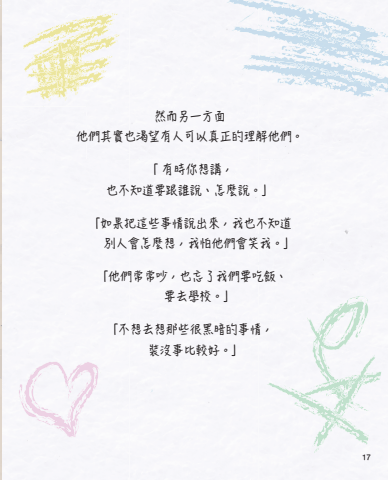 然而另一方面
他們其實也渴望有人可以真正的理解他們。
「有時你想講，
也不知道要跟誰說、怎麼說。」
「如果把這些事情說出來，我也不知道
別人會怎麼想，我怕他們會笑我。」
「他們常常吵，也忘了我們要吃飯、
要去學校。」
「不想去想那些很黑暗的事情，
裝沒事比較好。」
17